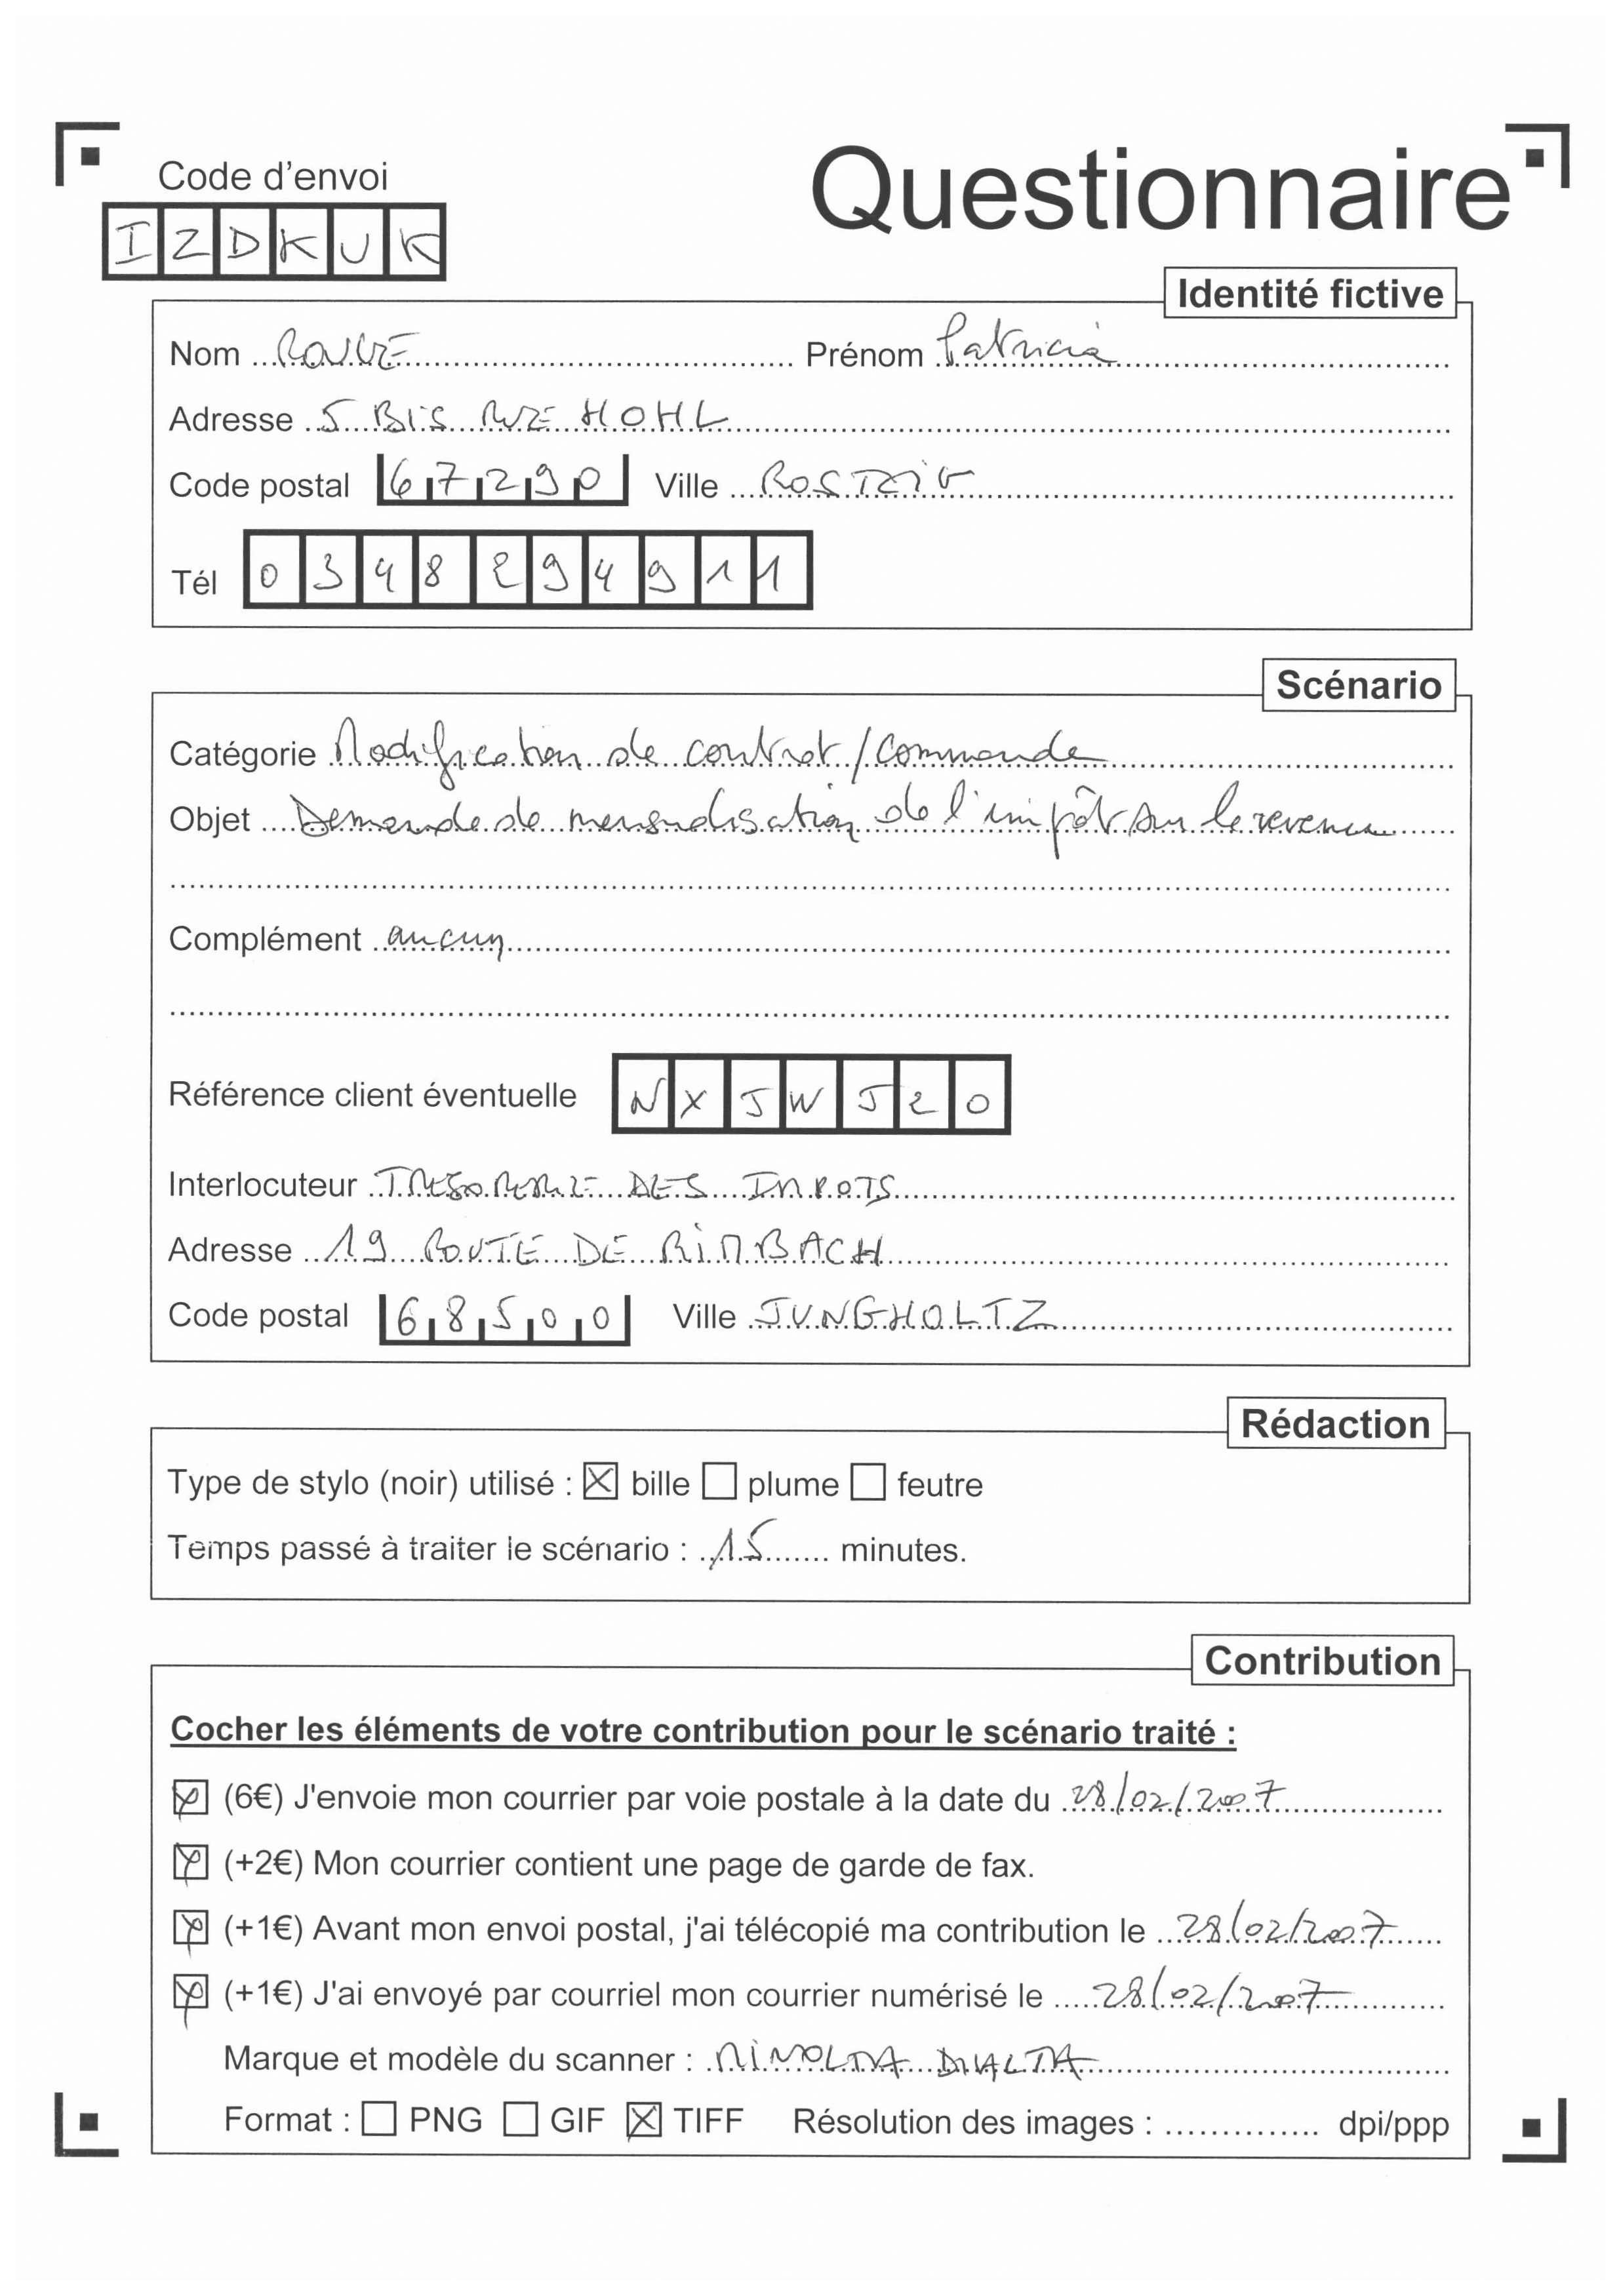 Code d'envoi
Questionnaire
IZDKUK
Identité fictive
Nom Prénom Patricia
Adresse 5 BIS RUE HOHL
Code postal 67290 Ville ROSTEIG
Tél 0348294911
Scénario
Catégorie Modification de contrat/commande
Objet Demande de mensualisation de l'impôt sur le revenu
Complément aucun
Référence client éventuelle NXJWJ20
Interlocuteur TRESORERIE DES IMPOTS
Adresse 19 ROUTE DE RIMBACH
Code postal 68500 Ville JUNGHOLTZ
Rédaction
Type de stylo (noir) utilisé : bille plume feutre
Temps passé à traiter le scénario : 15 minutes.
Contribution
Cocher les éléments de votre contribution pour le scénario traité :
(6€) J'envoie mon courrier par voie postale à la date du 28/02/2007
(+2€) Mon courrier contient une page de garde de fax.
(+1€) Avant mon envoi postal, j'ai télécopié ma contribution le 28/02/2007
(+1€) J'ai envoyé par courriel mon courrier numérisé le 28/02/2007
Marque et modèle du scanner : MINOLTA DIALTA
Format : PNG GIF TIFF Résolution des images : dpi/ppp